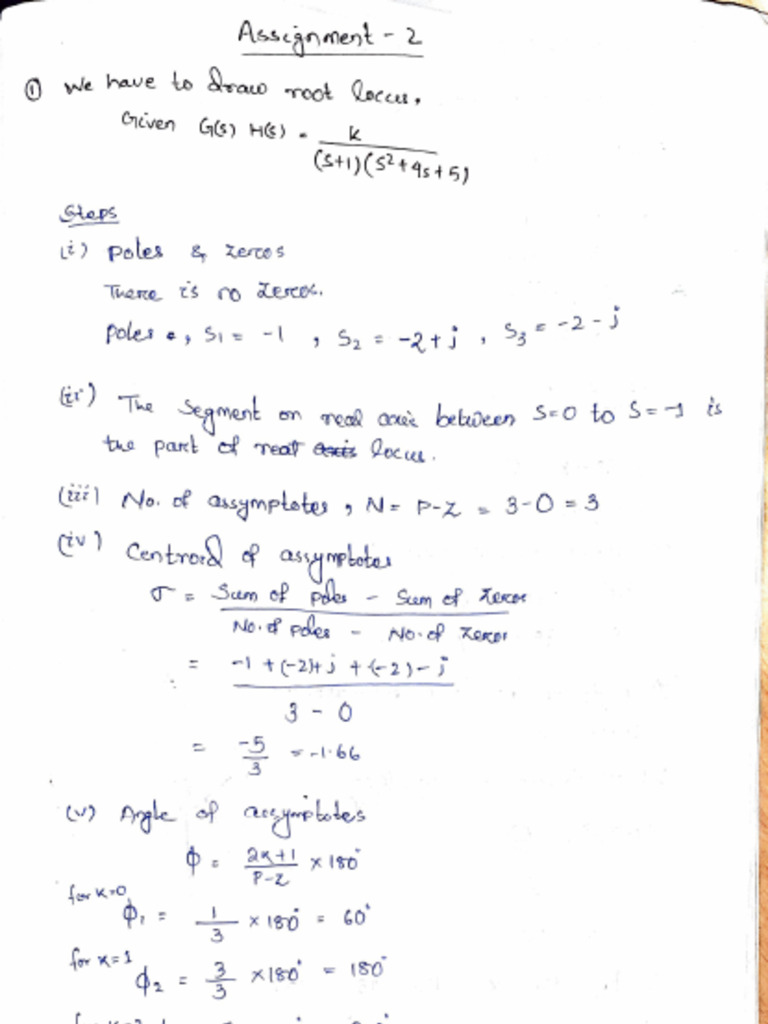 Assignment - 2
① We have to draw root locus.
Given G(s) H(s) = K / (s+1)(s²+4s+5)
Steps
(i) Poles & zeroes
There is no zeroes.
Poles, S₁ = -1 , S₂ = -2+j , S₃ = -2-j
(ii) The segment on real axis between S=0 to S=-1 is
the part of root locus.
(iii) No. of assymptotes, N = P-Z = 3-0 = 3
(iv) Centroid of assymptotes
σ = Sum of poles - Sum of zeros / No. of poles - No. of zeros
= -1 + (-2)+j + (-2)-j / 3 - 0
= -5/3 = -1.66
(v) Angle of assymptotes
ϕ = 2K+1 / P-Z × 180°
for K=0
ϕ₁ = 1/3 × 180° = 60°
for K=1
ϕ₂ = 3/3 × 180° = 180°